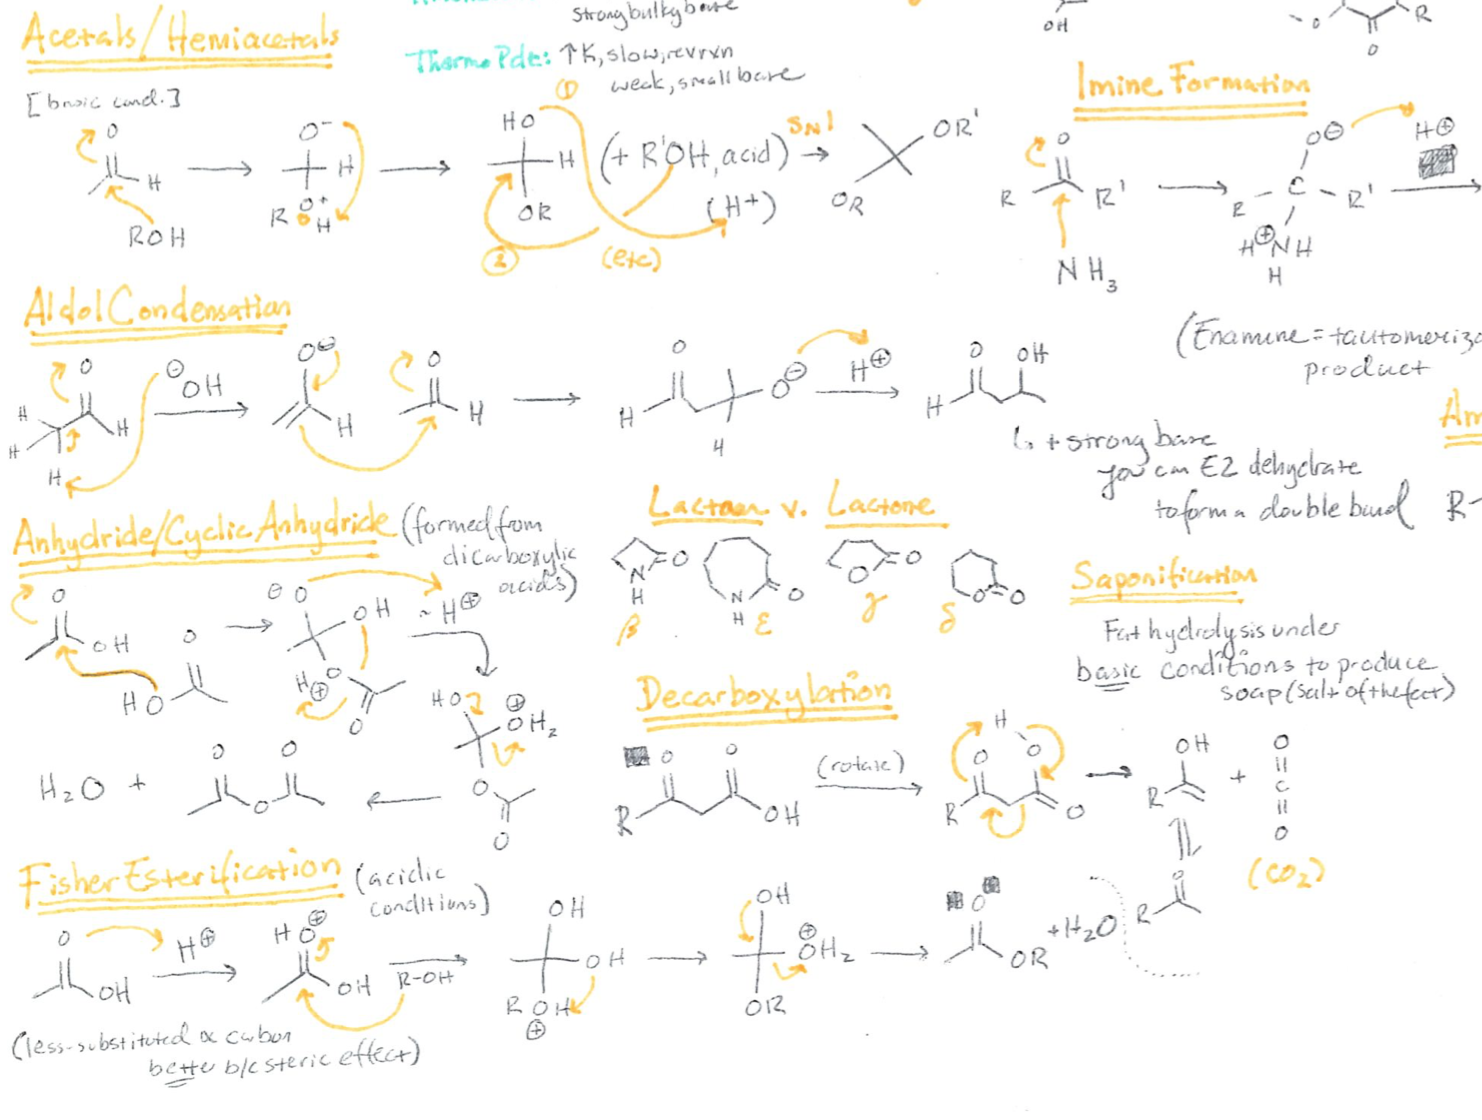 strong bulky base
Thermo Pdt: ↑K, slow, rev rxn
weak, small base
OH
O
R
O
Acetals/Hemiacetals
[basic cond.]
O
H
ROH
O⁻
H
R O⁺
H
HO
H
OR
①
②
(+ R'OH, acid)
SN1
(H+)
(etc)
OR'
OR
Imine Formation
O
R
R'
NH₃
O⊖
R
C
R'
H⊕NH
H
H⊕
(Enamine = tautomeriza
product
Aldol Condensation
O
H
H
H
H
⊖OH
O⊖
H
O
H
O
H
H
O⊖
H⊕
O
OH
H
↳ + strong base
you can E2 dehydrate
to form a double bond
Am
R-
Anhydride/Cyclic Anhydride (formed from
dicarboxylic
acids)
O
OH
O
HO
⊖O
OH
H⊕O
O
~H⊕
HO
⊕OH₂
O
O
H₂O +
O
O
O
Lactam v. Lactone
O
N
H
β
N
H
O
ε
O
O
γ
O
O
δ
Saponification
Fat hydrolysis under
basic conditions to produce
soap (salt of the fat)
Decarboxylation
O
O
R
OH
(rotate)
H
O
O
R
O
OH
R
+
O
C
O
(CO₂)
O
R
Fisher Esterification (acidic
conditions)
O
OH
H⊕
HO⊕
OH
R-OH
OH
OH
ROH
⊕
OH
⊕OH₂
OR
O
OR
+H₂O
(less-substituted ∝ carbon
better b/c steric effect)